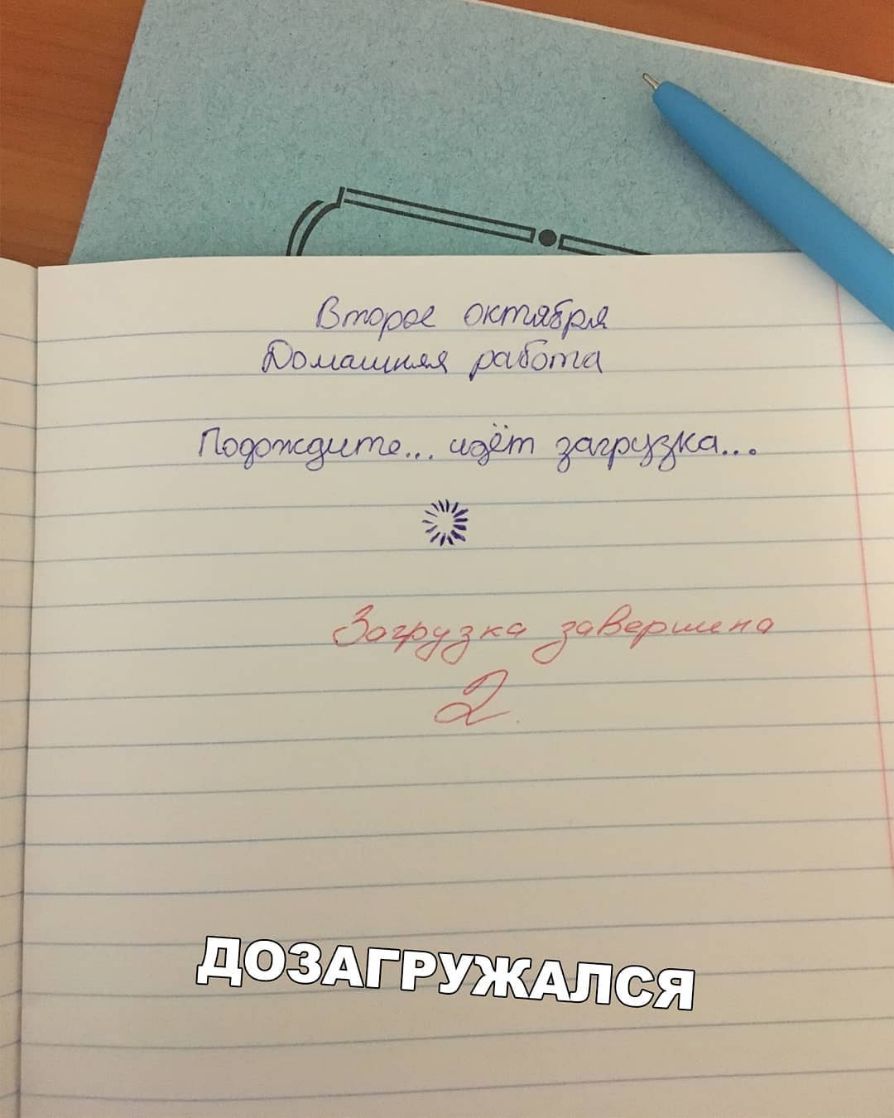 Второе октября
Домашняя работа
Подождите... идёт загрузка...
Загрузка завершена
2
ДОЗАГРУЖАЛСЯ